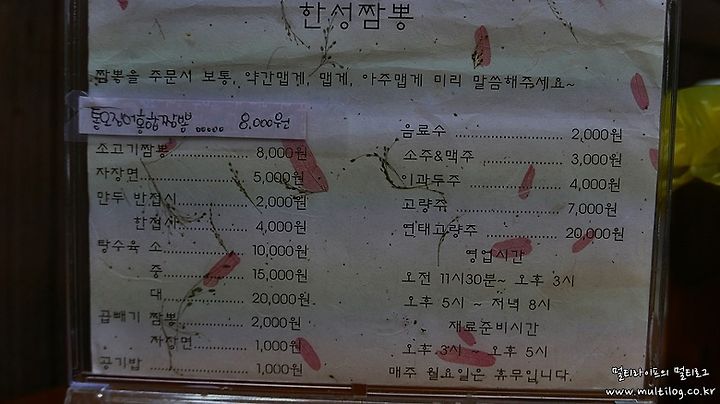 한성짬뽕
짬뽕을 주문시 보통, 약간맵게, 맵게, 아주맵게 미리 말씀해주세요~
통오징어홍합짬뽕 ..... 8,000원
소고기짬뽕 8,000원
자장면 5,000원
만두 반접시 2,000원
한접시 4,000원
탕수육 소 10,000원
중 15,000원
대 20,000원
곱빼기 짬뽕 2,000원
자장면 1,000원
공기밥 1,000원
음료수 2,000원
소주&맥주 3,000원
이과두주 4,000원
고량주 7,000원
연태고량주 20,000원
영업시간
오전 11시30분~ 오후 3시
오후 5시 ~ 저녁 8시
재료준비시간
오후 3시 ~ 오후 5시
매주 월요일은 휴무입니다.
멀티라이프의 멀티로그
www.multilog.co.kr